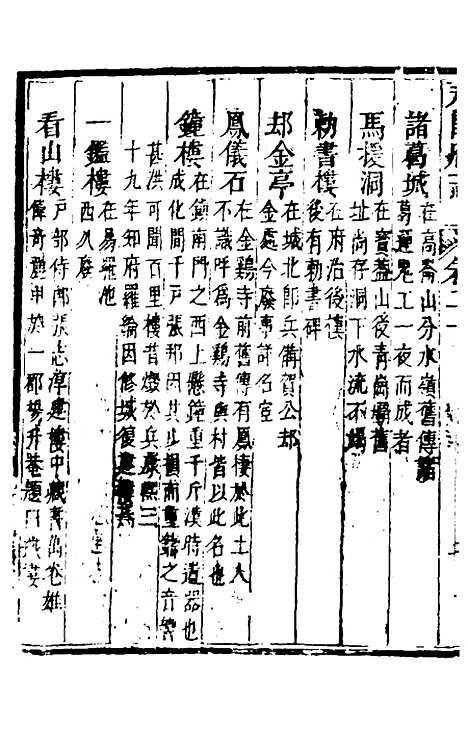 諸葛城在高崙山分水嶺舊傳諸
葛遣鬼工一夜而成者
馬援洞在寶蓋山後青崗壩舊
址尚存洞下水流不竭
勅書樓在府治後樓
後有勅書碑
却金亭在城北即兵備賀公却
金處今廢事詳名宦
鳳儀石在金鷄寺前舊傳有鳳棲於此土人
不識呼為金鷄寺與村皆以此名也
鐘樓在鎮南門之西上懸鐘重千斤漢時遺器也
成化間千戶張邦因其步損而重鑄之音響
甚洪可聞百里樓昔燬於兵康熙三
十九年知府羅綸因修城復建樓其
一鑑樓在易羅池
西久廢
看山樓戶部侍郎張志淳建樓中藏書萬卷雄
偉奇麗甲於一郡楊升菴題曰